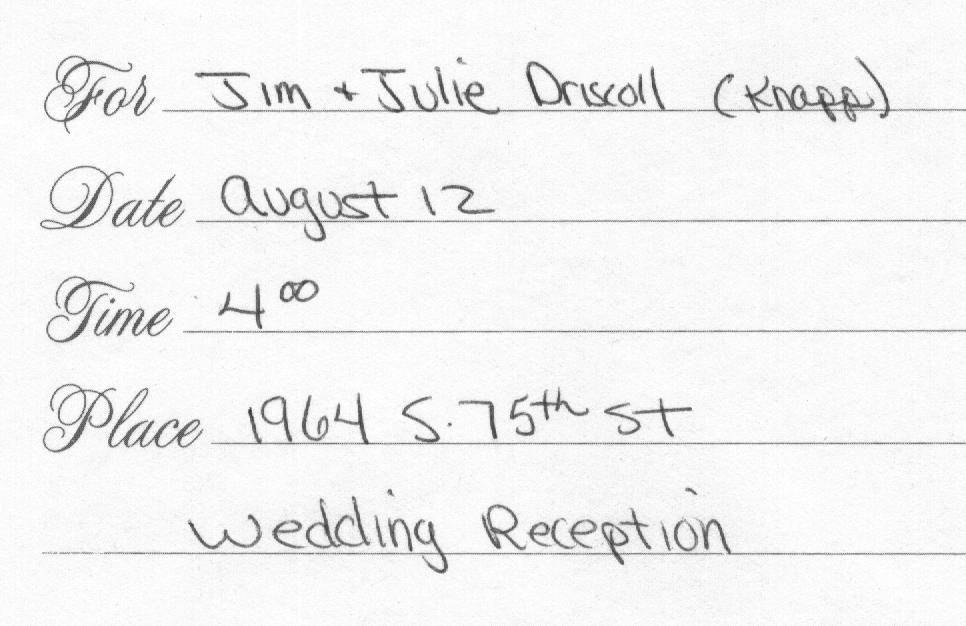 For Jim + Julie Driscoll (Knapp)
Date August 12
Time 4 00
Place 1964 S. 75th St
Wedding Reception